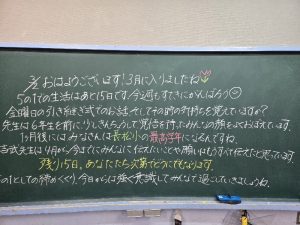 3/2 おはようございます!3月に入りましたね
5の1での生活はあと15日です。今週もすてきにがんばろう
金曜日の引き継ぎ式でのお話、そしてその時の気持ちを覚えていますか?
先生は6年生を前に、りんとした覚悟を持ったみんなの顔をよくおぼえています。
1ヶ月後にはみなさんは長松小の最高学年になるんですね。
吉武先生は4月から今までにみんなに伝えたいことや願いはもうすべて伝えたと思っています。
残り15日、あなたたち次第でどうにでもなります。
5の1としての締めくくり、今日からは強く意識してみんなで過ごしていきましょうね。